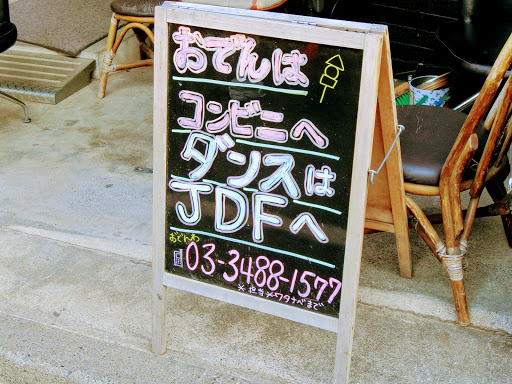 おでんは
コンビニへ
ダンスは
JDFへ
おでんわ
03-3488-1577
※担当※ワタナベまで